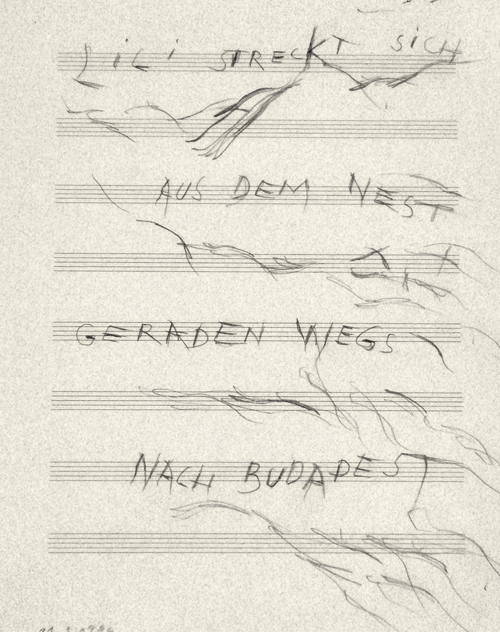 LiLi STRECKT SiCH
AUS DEM NEST
GERADEN WEGS
NACH BUDAPEST